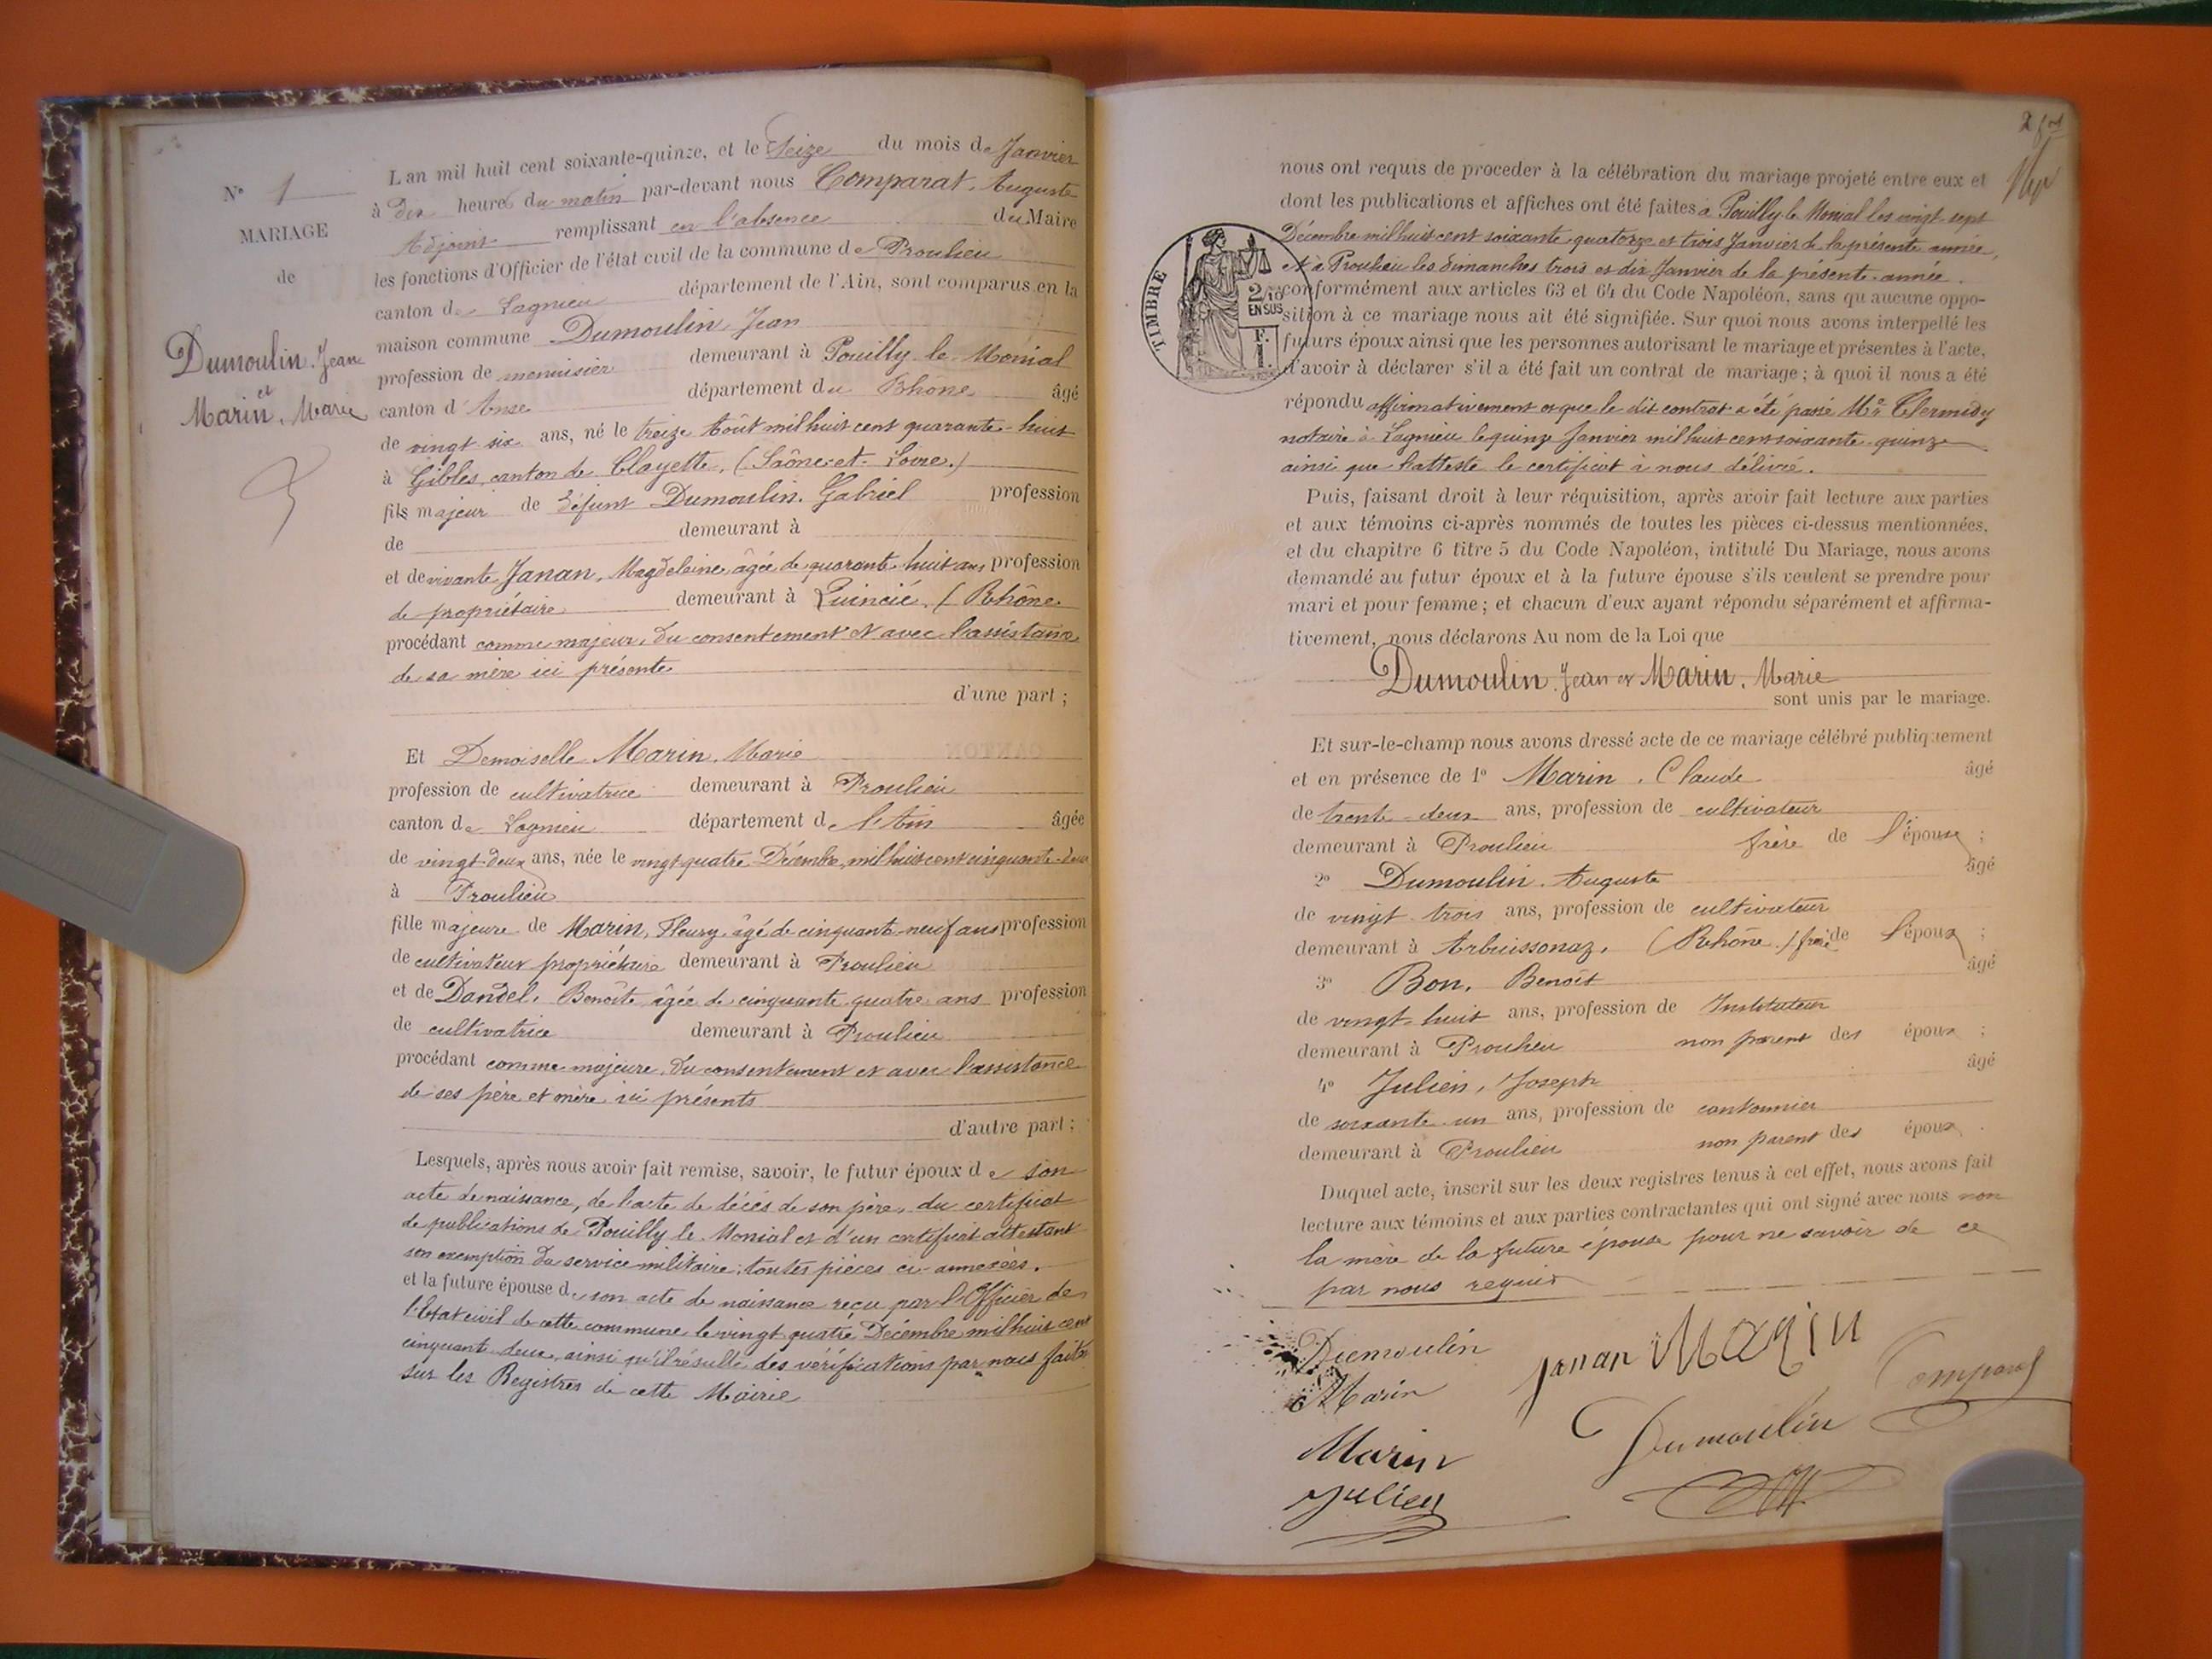 N° 1
MARIAGE
de
Dumoulin, Jean
et
Marin, Marie
L'an mil huit cent soixante-quinze, et le Seize du mois de Janvier
à dix heures du matin par-devant nous Comparat, Auguste
Adjoint remplissant en l'absence du Maire
les fonctions d'Officier de l'état civil de la commune de Proulieu
canton de Lagnieu département de l'Ain, sont comparus en la
maison commune Dumoulin, Jean
profession de menuisier demeurant à Pouilly-le-Monial
canton d'Anse département du Rhône âgé
de vingt six ans, né le treize Août mil huit cent quarante-huit
à Gibles, canton de Clayette, (Saône-et-Loire.)
fils majeur de défunt Dumoulin, Gabriel profession
de demeurant à
et de vivante Janan, Magdeleine âgée de quarante huit ans profession
de propriétaire demeurant à Quincié, (Rhône.
procédant comme majeur, du consentement et avec l'assistance
de sa mère ici présente
d'une part ;
Et Demoiselle Marin, Marie
profession de cultivatrice demeurant à Proulieu
canton de Lagnieu département de l'Ain âgée
de vingt-deux ans, née le vingt quatre Décembre, mil huit cent cinquante-deux
à Proulieu
fille majeure de Marin, Fleury, âgé de cinquante-neuf ans profession
de cultivateur propriétaire demeurant à Proulieu
et de Dandel, Benoîte âgée de cinquante quatre ans profession
de cultivatrice demeurant à Proulieu
procédant comme majeure, du consentement et avec l'assistance
de ses père et mère ici présents
d'autre part ;
Lesquels, après nous avoir fait remise, savoir, le futur époux de son
acte de naissance, de l'acte de décès de son père, du certificat
de publications de Pouilly le Monial et d'un certificat attestant
son exemption du service militaire ; toutes pièces ci-annexées.
et la future épouse de son acte de naissance reçu par l'Officier de
l'état civil de cette commune le vingt quatre Décembre mil huit cent
cinquante deux, ainsi qu'il résulte des vérifications par nous faites
sur les Registres de cette Mairie
2
nous ont requis de proceder à la célébration du mariage projeté entre eux et
dont les publications et affiches ont été faites à Pouilly le Monial les vingt-sept
Décembre mil huit cent soixante quatorze et trois Janvier de la présente année,
et à Proulieu les dimanches trois et dix Janvier de la présente année.
conformément aux articles 63 et 64 du Code Napoléon, sans qu'aucune oppo-
sition à ce mariage nous ait été signifiée. Sur quoi nous avons interpellé les
futurs époux ainsi que les personnes autorisant le mariage et présentes à l'acte,
d'avoir à déclarer s'il a été fait un contrat de mariage ; à quoi il nous a été
répondu affirmativement et que le dit contrat a été passé Me Clermidy
notaire à Lagnieu le quinze Janvier mil huit cent soixante-quinze
ainsi que l'atteste le certificat à nous délivré.
TIMBRE
2/10
EN SUS
F.
1
Puis, faisant droit à leur réquisition, après avoir fait lecture aux parties
et aux témoins ci-après nommés de toutes les pièces ci-dessus mentionnées,
et du chapitre 6 titre 5 du Code Napoléon, intitulé Du Mariage, nous avons
demandé au futur époux et à la future épouse s'ils veulent se prendre pour
mari et pour femme ; et chacun d'eux ayant répondu séparément et affirma-
tivement, nous déclarons Au nom de la Loi que
Dumoulin, Jean et Marin, Marie
sont unis par le mariage.
Et sur-le-champ nous avons dressé acte de ce mariage célébré publiquement
et en présence de 1° Marin, Claude âgé
de trente-deux ans, profession de cultivateur
demeurant à Proulieu frère de l'épouse ;
2° Dumoulin, Auguste âgé
de vingt trois ans, profession de cultivateur
demeurant à Arbuissonaz, (Rhône.) frère de l'époux ;
3° Bon, Benoît âgé
de vingt-huit ans, profession de Instituteur
demeurant à Proulieu non parent des époux ;
4° Julien, Joseph âgé
de soixante-un ans, profession de cantonnier
demeurant à Proulieu non parent des époux.
Duquel acte, inscrit sur les deux registres tenus à cet effet, nous avons fait
lecture aux témoins et aux parties contractantes qui ont signé avec nous non
la mère de la future épouse pour ne savoir de ce
par nous requis
Dumoulin
Janan Marin
Marin
Comparat
Marin
Dumoulin
Julien